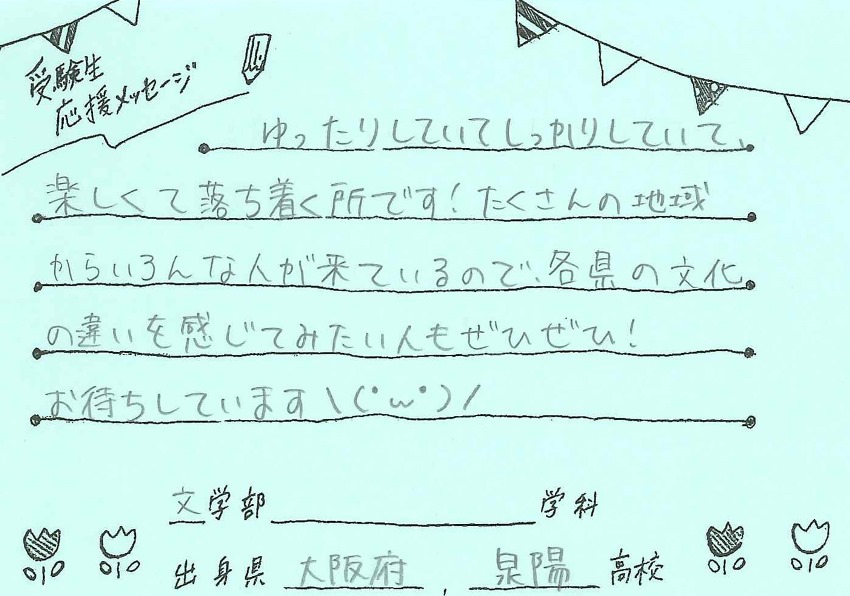 受験生
応援メッセージ
ゆったりしていてしっかりしていて、
楽しくて落ち着く所です！たくさんの地域
からいろんな人が来ているので、各県の文化
の違いを感じてみたい人もぜひぜひ！
お待ちしています\(・ω・)/
文学部 学科
出身県 大阪府 , 泉陽 高校